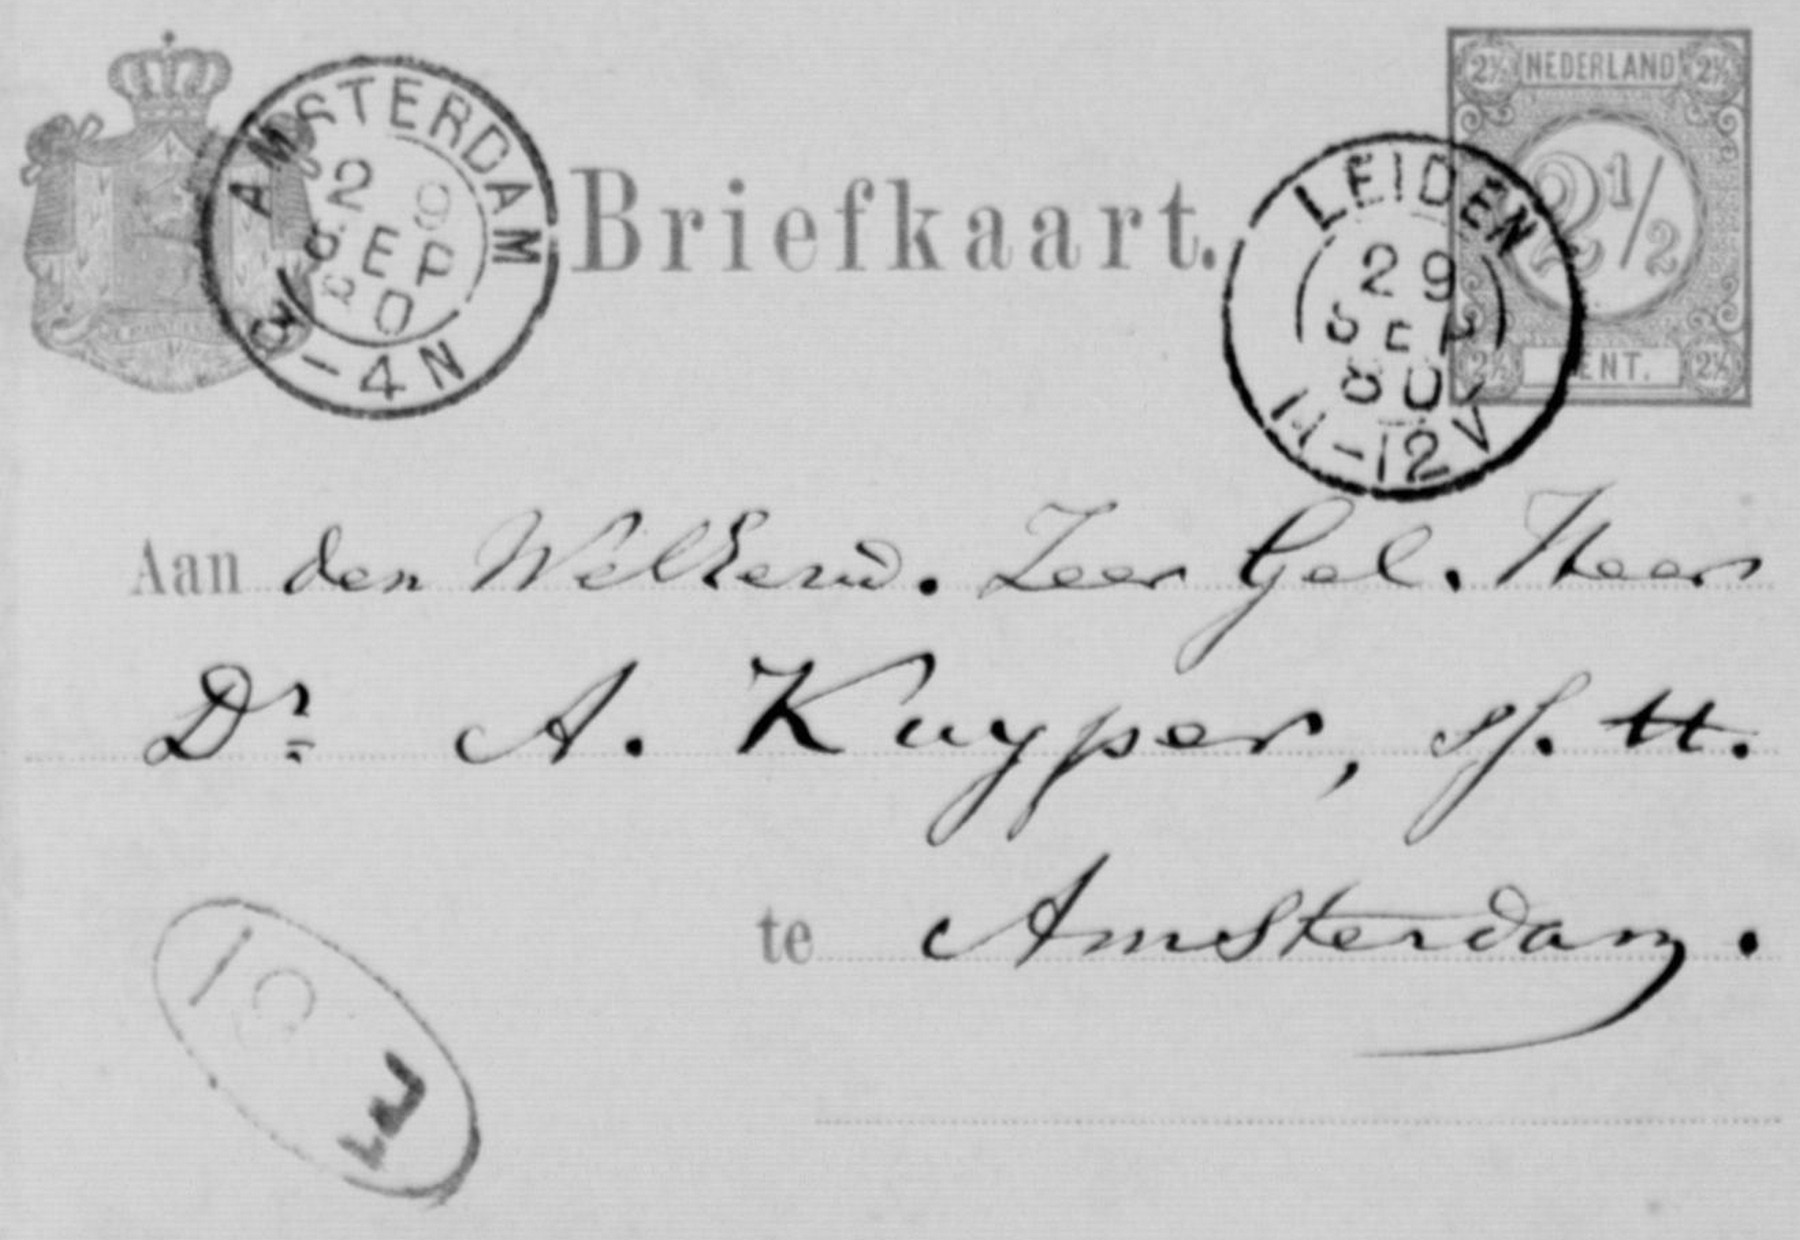 AMSTERDAM
29
SEP
80
3-4N
Briefkaart.
LEIDEN
29
SEP
80
11-12V
2½ NEDERLAND 2½
2½
2½ CENT. 2½
Aan den WelEerw. Zeer Gel. Heer
Dr A. Kuyper, s.t.t.
te Amsterdam.